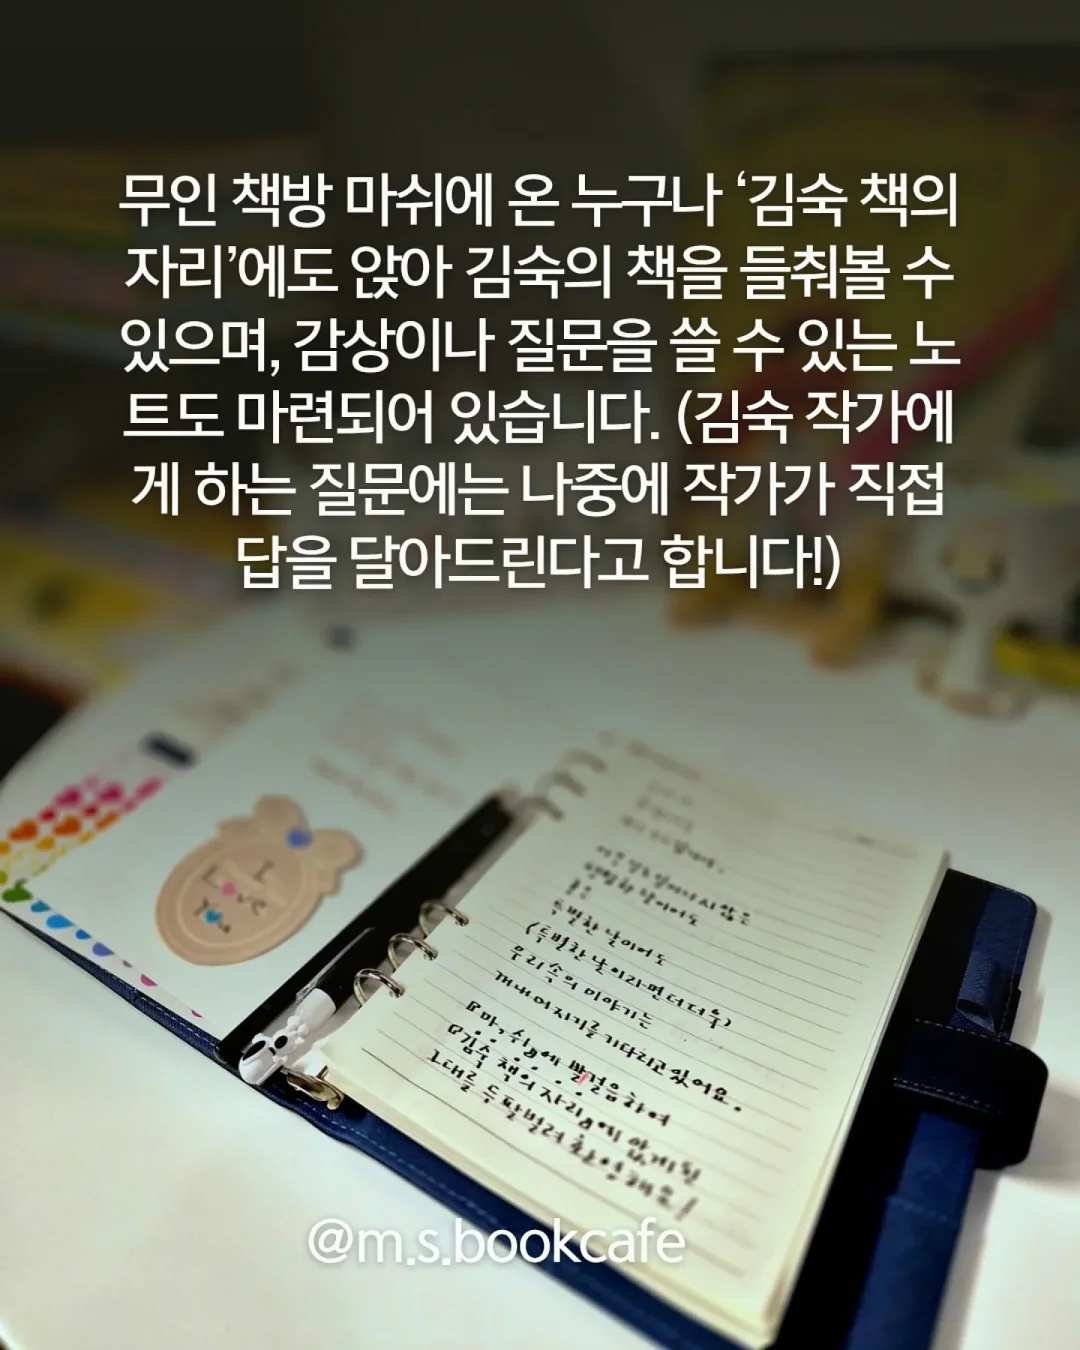 무인 책방 마쉬에 온 누구나 ‘김숙 책의
자리’에도 앉아 김숙의 책을 들춰볼 수
있으며, 감상이나 질문을 쓸 수 있는 노
트도 마련되어 있습니다. (김숙 작가에
게 하는 질문에는 나중에 작가가 직접
답을 달아드린다고 합니다!)
I
Love
You
특별한 날이어도
(특별한 날이라면 더더욱)
우리 속의 이야기는
꺼내어지기를 기다리고 있어요.
『마,쉬』에 발걸음하여
『김숙 책의 자리』에 앉게 된
그대를 두 팔 벌려 환영해요!
@m.s.bookcafe